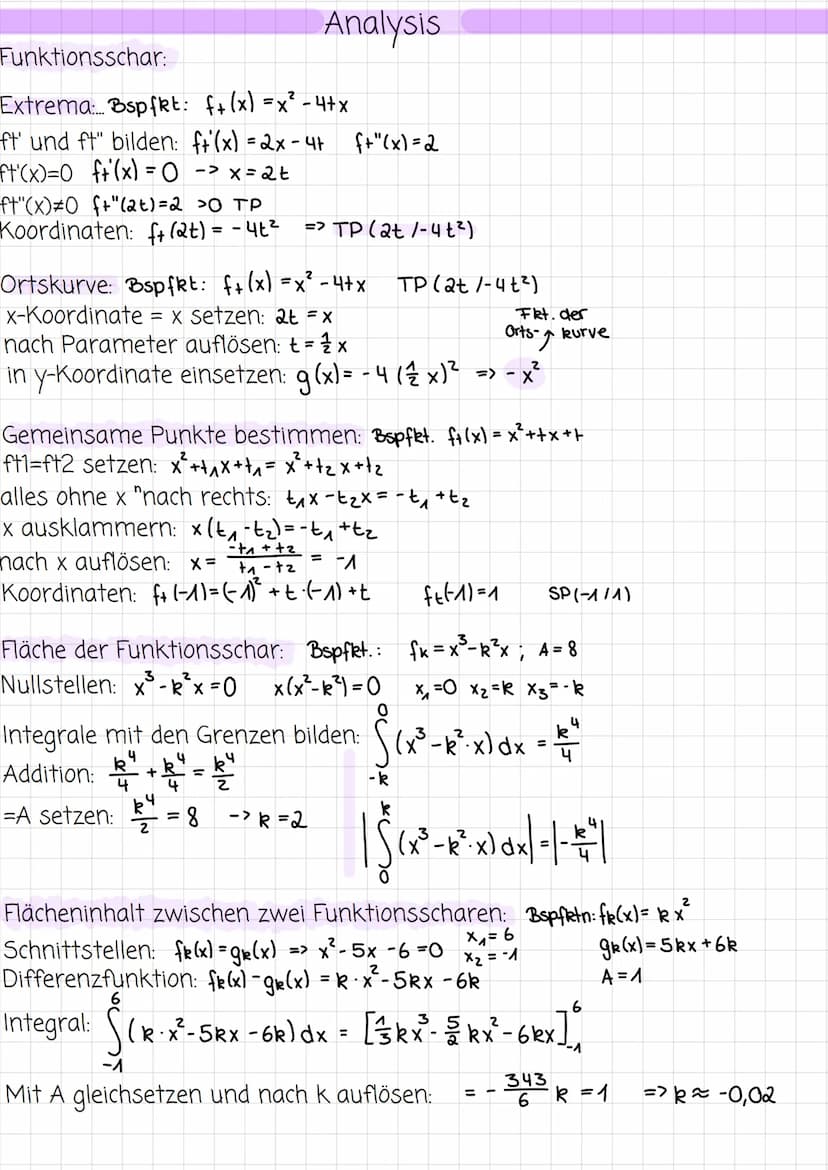 Analysis
Funktionsschar:
Extrema:.. Bspfkt: fₜ(x) = x² - 4tx
ft' und ft" bilden: fₜ'(x) = 2x - 4t fₜ"(x) = 2
ft'(x)=0 fₜ'(x) = 0 -> x = 2t
ft"(x)≠0 fₜ"(2t)=2 >0 TP
Koordinaten: fₜ(2t) = - 4t² => TP (2t /-4t²)
Ortskurve: Bspfkt: fₜ(x) = x² - 4tx TP (2t /-4t²)
x-Koordinate = x setzen: 2t = x
Fkt. der
Orts- kurve
nach Parameter auflösen: t = 1/2 x
in y-Koordinate einsetzen: g(x) = - 4 (1/2 x)² => - x²
Gemeinsame Punkte bestimmen: Bspfkt. fₜ(x) = x² + tx + t
ft1=ft2 setzen: x² + t₁x + t₁ = x² + t₂x + t₂
alles ohne x "nach rechts: t₁x - t₂x = - t₁ + t₂
x ausklammern: x(t₁ - t₂) = - t₁ + t₂
nach x auflösen: x = (-t₁ + t₂)/(t₁ - t₂) = -1
Koordinaten: fₜ(-1) = (-1)² + t·(-1) + t fₜ(-1) = 1 SP(-1/1)
Fläche der Funktionsschar: Bspfkt.: fₖ = x³ - k²x ; A = 8
Nullstellen: x³ - k²x = 0 x(x² - k²) = 0 x₁ = 0 x₂ = k x₃ = - k
Integrale mit den Grenzen bilden: ∫₋ₖ⁰ (x³ - k²·x) dx = k⁴/4
Addition: k⁴/4 + k⁴/4 = k⁴/2
=A setzen: k⁴/2 = 8 -> k = 2
|∫₀ᵏ (x³ - k²·x) dx| = |- k⁴/4|
Flächeninhalt zwischen zwei Funktionsscharen: Bspfktn: fₖ(x) = k x²
Schnittstellen: fₖ(x) = gₖ(x) => x² - 5x - 6 = 0 x₁ = 6 x₂ = -1 gₖ(x) = 5kx + 6k
Differenzfunktion: fₖ(x) - gₖ(x) = k·x² - 5kx - 6k A = 1
Integral: ∫₋₁⁶ (k·x² - 5kx - 6k) dx = [1/3 kx³ - 5/2 kx² - 6kx]₋₁⁶
Mit A gleichsetzen und nach k auflösen: = - 343/6 k = 1 => k ≈ -0,02